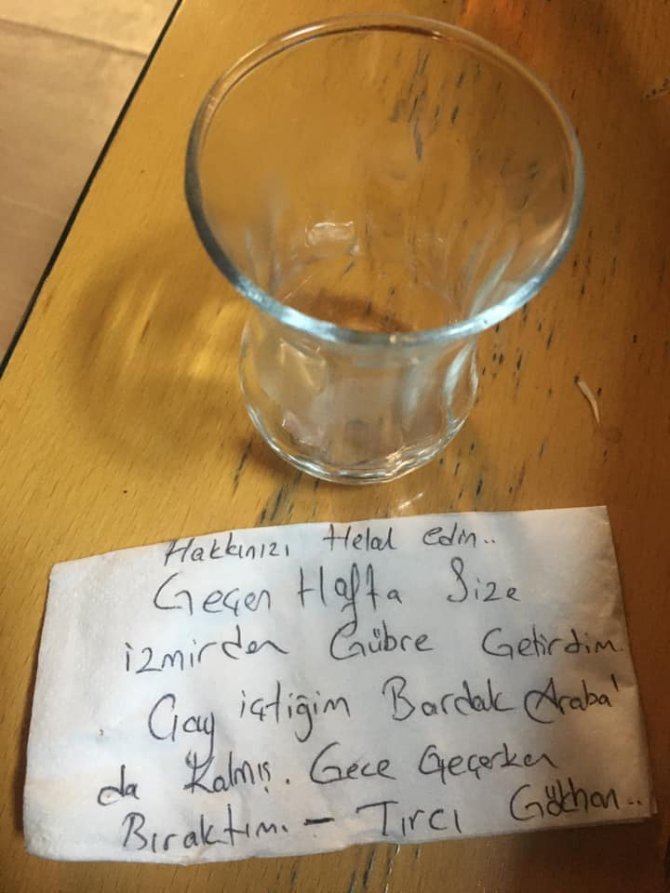 Hakkınızı Helal edin..
Geçen Hafta Size
izmirden Gübre Getirdim.
Çay içtiğim Bardak Araba'
da kalmış. Gece Geçerken
Bıraktım. – Tırcı Gökhan..